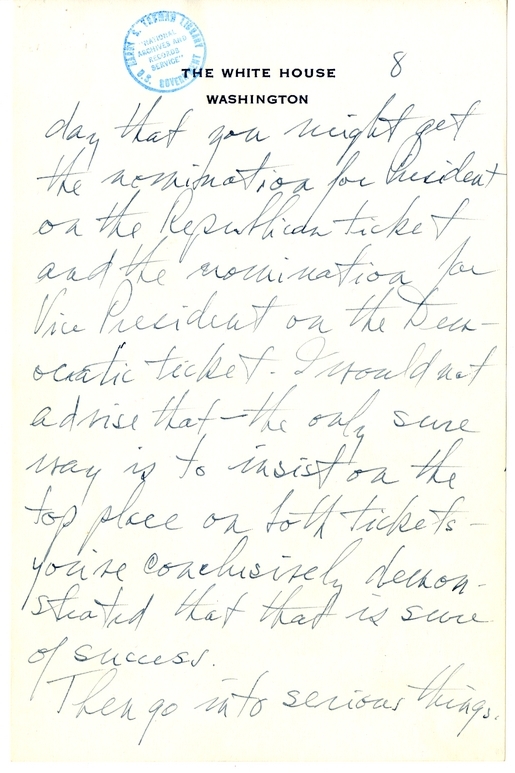 HARRY S. TRUMAN LIBRARY
"NATIONAL
ARCHIVES AND
RECORDS
SERVICE"
U.S. GOVERNMENT
THE WHITE HOUSE 8
WASHINGTON
day that you might get
the nomination for President
on the Republican ticket
and the nomination for
Vice President on the Dem-
ocratic ticket. I would not
advise that - the only sure
way is to insist on the
top place on both tickets -
you've conclusively demon-
strated that that is sure
of success.
Then go into serious things.